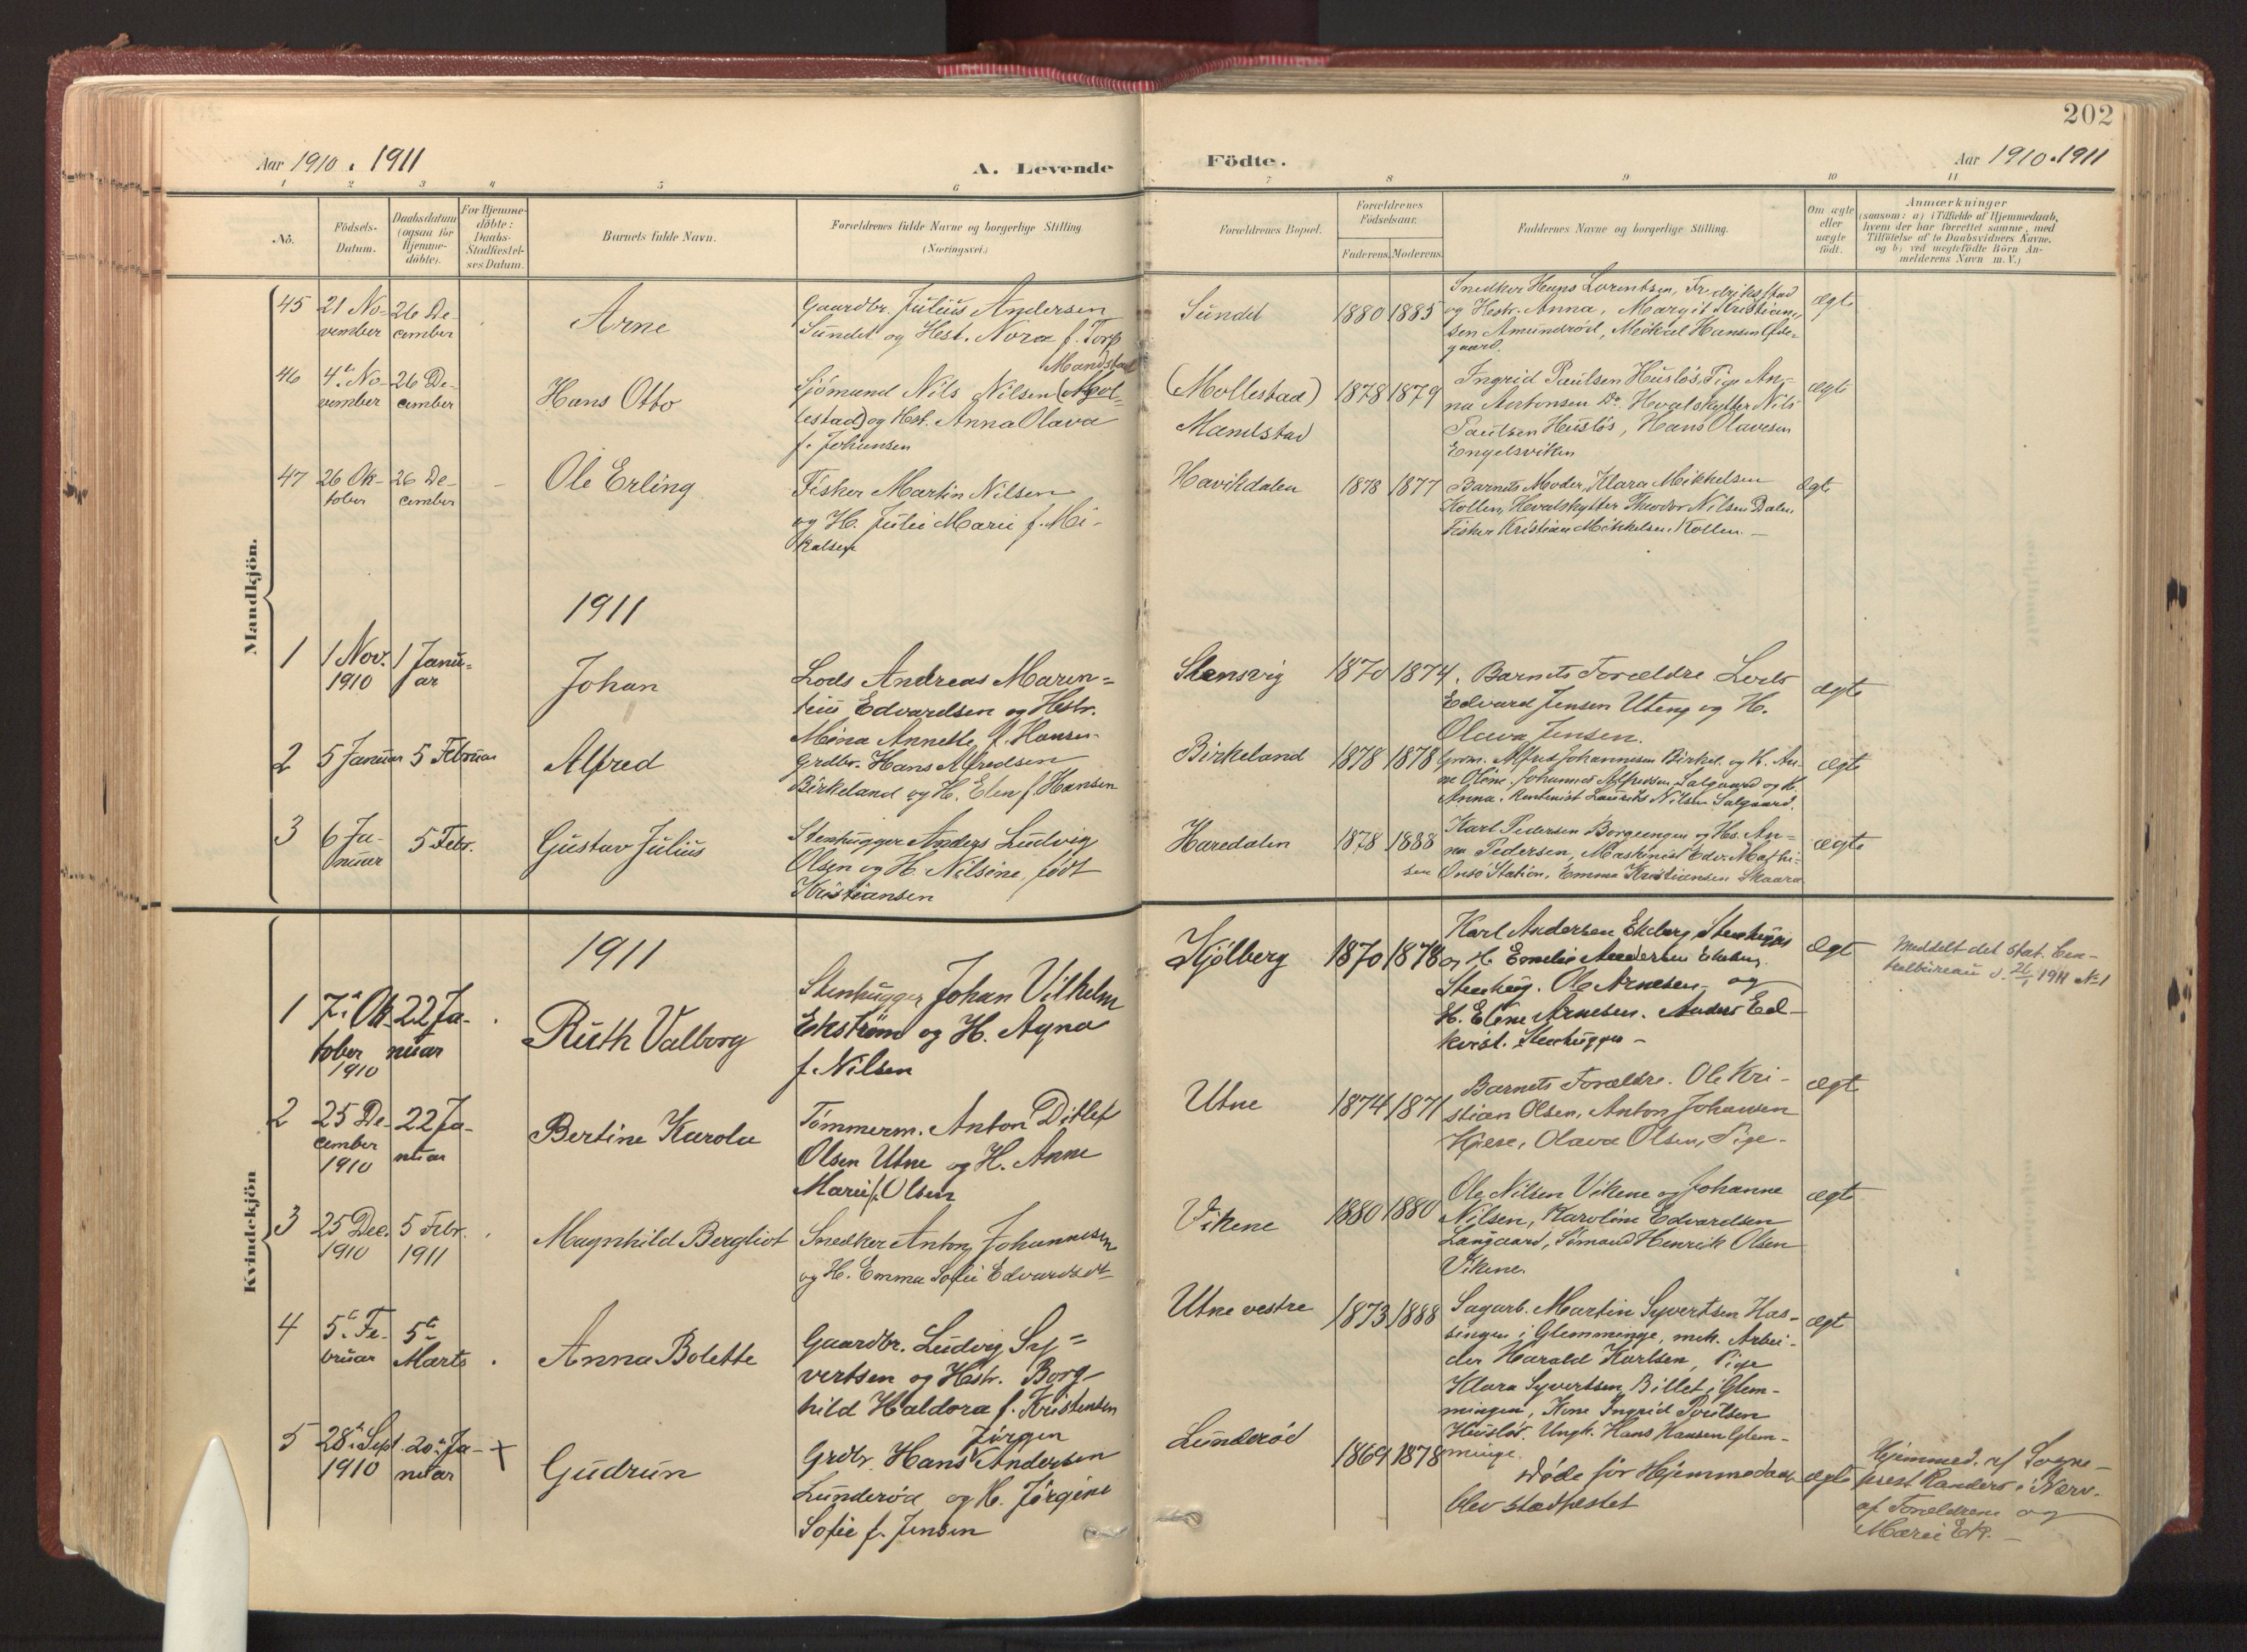 202
Aar 1910. 1911
A. Levende
Födte.
Aar 1910.1911
1 2 3 4 5 6 7 8 9 10 11
No.
Födsels-
Datum.
Daabsdatum
(ogsaa for
Hjemme-
döbte).
For Hjemme-
döbte:
Daabs-
Stadfæstel-
ses Datum.
Barnets fulde Navn.
Forældrenes fulde Navne og borgerlige Stilling
(Næringsvei.)
Forældrenes Bopæl.
Forældrenes
Födselsaar.
Faderens. Moderens.
Faddernes Navne og borgerlige Stilling.
Om ægte
eller
uægte
födt.
Anmærkninger
(saasom: a) i Tilfælde af Hjemmedaab,
hvem der har forrettet samme, med
Tilföielse af to Daabsvidners Navne,
og b) ved uægtefödte Börn An-
melderens Navn m. V.)
Mandkjön.
45
21 No-
vember
26 De-
cember
Arne
Gaardbr. Julius Andersen
Sundet og Hest. Nora f. Torp
Sundet
1880 1885
Snedker Hans Lorentsen, Fredriksstad
og Hestr. Anna, Margit Kristian-
sen Amundrød, Mikal Hansen Øde-
gaard.
ægte
46
4de No-
vember
26 De-
cember
Hans Otto
Mandstad
Sjömand Nils Nilsen (Mol-
lestad) og Hst. Anna Olava
f. Johansen
(Mollestad)
Mandstad
1878 1879
Ingrid Paulsen Husløs, Pige An-
na Antonsen Do. Hvalskytter Nils
Paulsen Husløs, Hans Olavesen
Engelsviken
ægte
47
26 Ok-
tober
26 De-
cember
Ole Erling
Fisker Martin Nilsen
og H. Julie Marie f. Mi-
kalsen
Havikdalen
1878 1877
Barnets Moder, Klara Mikkelsen
Kollen, Hvalskytter Theodor Nilsen Dalen
Fisker Kristian Mikkelsen, Kollen.
ægte
1911
1
1 Nov.
1910
1 Janu-
ar
Johan
Lods Andreas Maren-
tius Edvardsen og Hestr.
Mina Annette f. Hansen
Stensvig
1870 1874
Barnets Forældre Lods
Edvard Jensen Uteng og H.
Olava Jensen.
ægte
2
5 Januar
5 Februar
Alfred
Grdbr. Hans Alfredsen
Birkeland og H. Elen f. Hansen
Birkeland
1878 1878
Grdm. Alfred Johannesen Birkel. og H. An-
ne Oline. Johannes Alfredsen Salgaard og H.
Anna. Rentenist Laurits Nilsen Salgaard.
ægte
3
6 Ja-
nuar
5 Febr.
Gustav Julius
Stenhugger Anders Ludvig
Olsen og H. Nilsine, født
Kristiansen
Haredalen
1878 1888
Karl Pedersen Borgeengen og Hs. An-
na Pedersen, Maskinist Edv. Mathi-
sen Onsö Station, Emma Kristiansen Skaara
ægte
Kvindekjön
1911
1
7de Ok-
tober
1910
22 Ja-
nuar
Ruth Valborg
Stenhugger Johan Vilhelm
Ekstrøm og H. Agna
f. Nilsen
Kjölberg
1870 1878
Karl Andersen Ekeberg, Stenhugger
og H. Emelie Andersen Ekeberg.
Stenhug. Ole Arnesen, og
H. Eline Arnesen. Anders Ed-
kvist. Stenhugger
ægt
Meddelt det Stat. Cen-
tralbureau d. 26/1 1911 No 1
2
25 De-
cember
1910
22 Ja-
nuar
Bertine Karola
Tömmerm. Anton Ditlef
Olsen Utne og H. Anne
Marie f. Olsen
Utne
1874 1871
Barnets Forældre. Ole Kri-
stian Olsen, Anton Johansen
Kjære, Olava Olsen, Pige.
ægt
3
25 Dec.
1910
5 Febr.
1911
Magnhild Bergliot
Snedker Anton Johannesen
og H. Emma Sofie Edvardsdt
Vikene
1880 1880
Ole Nilsen Vikene og Johanne
Nilsen, Karoline Edvardsen
Langaard, Sømand Henrik Olsen
Vikene.
ægt
4
5te Fe-
bruar
5te
Marts
Anna Bolette
Gaardbr. Ludvig Sy-
vertsen og Hstr. Borg-
hild Haldora f. Kristensen
Utne vestre
1873 1888
Sagarb. Martin Syvertsen Has-
singen i Glemminge, mek. Arbei-
der Harald Karlsen, Pige
Klara Syvertsen Billet i Glem-
mingen, Kone Ingrid Poulsen
Husløs. Ungk. Hans Hansen Glem-
minge.
ægt
5
28de Sept.
1910
20de Ja-
nuar
+
Gudrun
Jörgen
Grdbr. Hans Andersen
Lunderød og H. Jørgine
Sofie f. Jensen
Lunderød
1869 1878
Døde før Hjemmedaab
blev stadfæstet
ægte
Hjemmed. af Sogne-
prest Randers i Nærv.
af Forældrene og
Marie Ek.